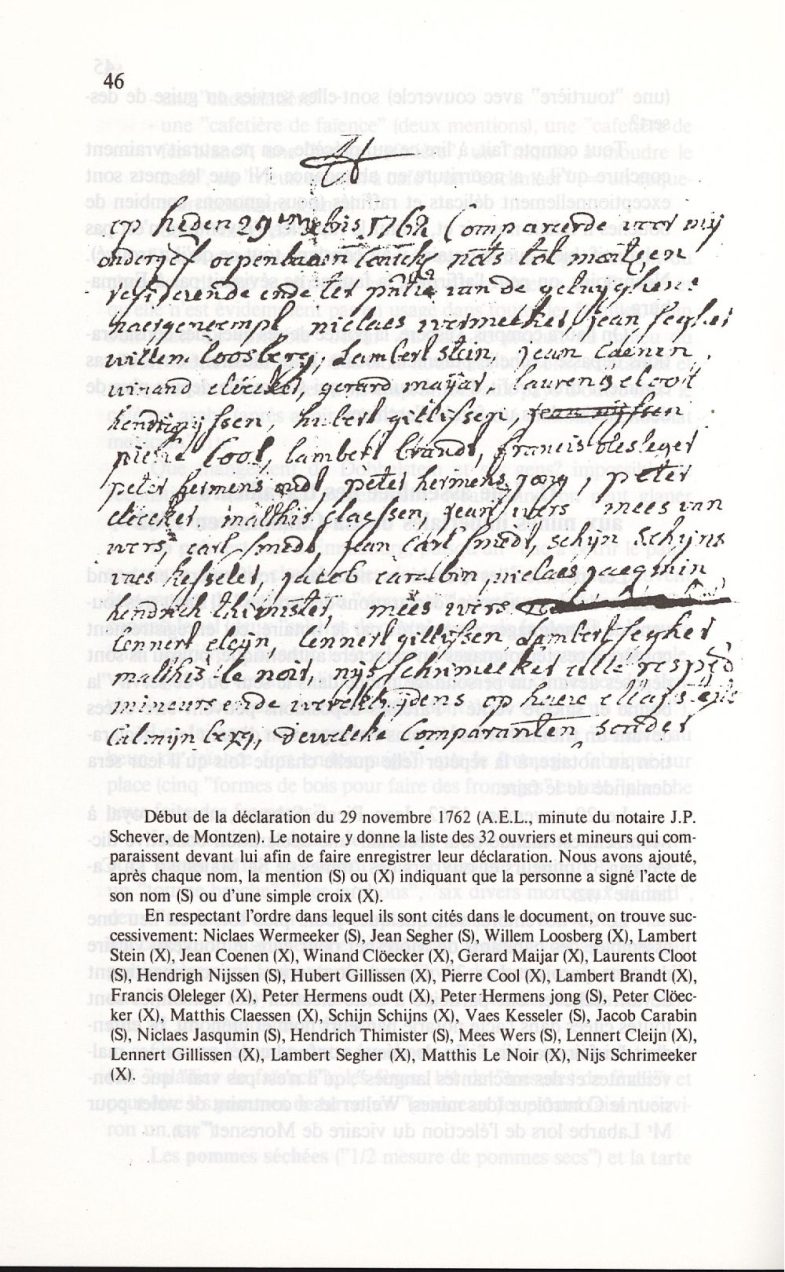 46
op heden 29 1762 Compareerde voor mij
ondergef oepenbaeren
residerende ende ter van de getuyghens
naergenoempt niclaes wermeeker, jean segher
willem loosberg, Lambert stein, jean Caenen,
winand clöecker, gerard maijar, laurens cloot
hendrig nijssen, hubert gillissen, jean nijssen
pierre Cool, lambert brandt, francis olesleger
peter hermens oudt, peter hermens jong, peter
clöecker, matthis claessen, jean wers mees van
wers, carl smedt, jean carl smedt, schijn schijns
vaes kesseler, jacob carabin, niclaes jacqmin
hendrich thimister, mees wers
lennert cleijn, lennert gillissen Lambert segher
matthis le noir, nijs schrimeeker alle
mineurs ende werckluijdens op heure
Calmijnberg, deweleke Comparanten
Début de la déclaration du 29 novembre 1762 (A.E.L., minute du notaire J.P.
Schever, de Montzen). Le notaire y donne la liste des 32 ouvriers et mineurs qui com-
paraissent devant lui afin de faire enregistrer leur déclaration. Nous avons ajouté,
après chaque nom, la mention (S) ou (X) indiquant que la personne a signé l'acte de
son nom (S) ou d'une simple croix (X).
En respectant l'ordre dans lequel ils sont cités dans le document, on trouve suc-
cessivement: Niclaes Wermeeker (S), Jean Segher (S), Willem Loosberg (X), Lambert
Stein (X), Jean Coenen (X), Winand Clöecker (X), Gerard Maijar (X), Laurents Cloot
(S), Hendrigh Nijssen (S), Hubert Gillissen (X), Pierre Cool (X), Lambert Brandt (X),
Francis Oleleger (X), Peter Hermens oudt (X), Peter Hermens jong (S), Peter Clöec-
ker (X), Matthis Claessen (X), Schijn Schijns (X), Vaes Kesseler (S), Jacob Carabin
(S), Niclaes Jasqumin (S), Hendrich Thimister (S), Mees Wers (S), Lennert Cleijn (X),
Lennert Gillissen (X), Lambert Segher (X), Matthis Le Noir (X), Nijs Schrimeeker
(X).